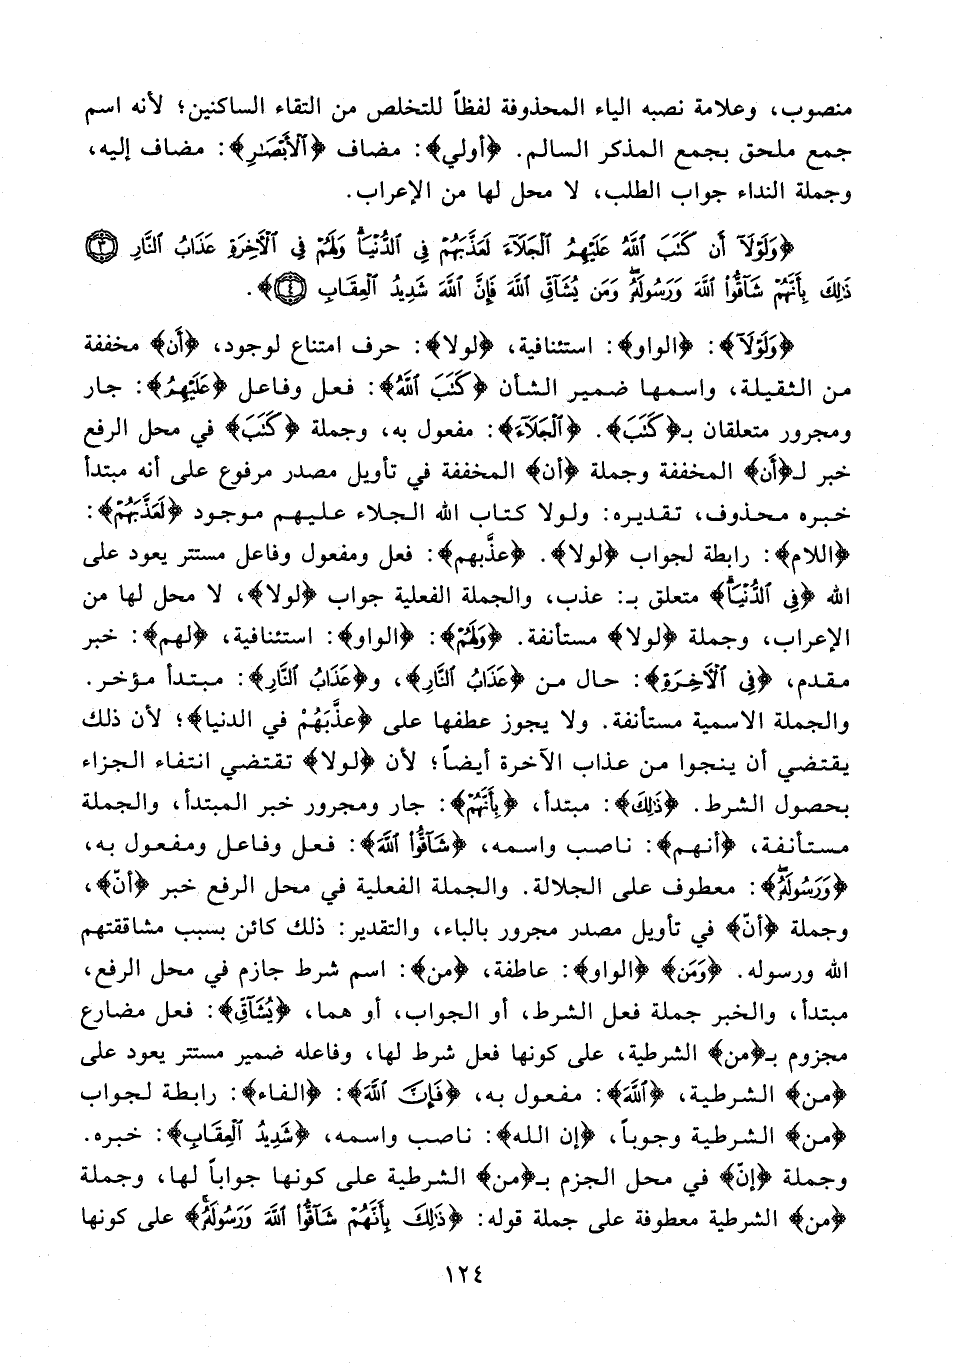 منصوب، وعلامة نصبه الياء المحذوفة لفظاً للتخلص من التقاء الساكنين؛ لأنه اسم
جمع ملحق بجمع المذكر السالم. ﴿أولي﴾: مضاف ﴿ٱلْأَبْصَـٰرِ﴾: مضاف إليه،
وجملة النداء جواب الطلب، لا محل لها من الإعراب.
﴿وَلَوْلَآ أَن كَتَبَ ٱللَّهُ عَلَيْهِمُ ٱلْجَلَآءَ لَعَذَّبَهُمْ فِى ٱلدُّنْيَا ۖ وَلَهُمْ فِى ٱلْـَٔاخِرَةِ عَذَابُ ٱلنَّارِ ٣
ذَٰلِكَ بِأَنَّهُمْ شَآقُّوا۟ ٱللَّهَ وَرَسُولَهُۥ ۖ وَمَن يُشَآقِّ ٱللَّهَ فَإِنَّ ٱللَّهَ شَدِيدُ ٱلْعِقَابِ ٤﴾.
﴿وَلَوْلَآ﴾: ﴿الواو﴾: استئنافية، ﴿لولا﴾: حرف امتناع لوجود، ﴿أَن﴾ مخففة
من الثقيلة، واسمها ضمير الشأن ﴿كَتَبَ ٱللَّهُ﴾: فعل وفاعل ﴿عَلَيْهِمُ﴾: جار
ومجرور متعلقان بـ﴿كَتَبَ﴾. ﴿ٱلْجَلَآءَ﴾: مفعول به، وجملة ﴿كَتَبَ﴾ في محل الرفع
خبر لـ﴿أَن﴾ المخففة وجملة ﴿أن﴾ المخففة في تأويل مصدر مرفوع على أنه مبتدأ
خبره محذوف، تقديره: ولولا كتاب الله الجلاء عليهم موجود ﴿لَعَذَّبَهُمْ﴾:
﴿اللام﴾: رابطة لجواب ﴿لولا﴾. ﴿عذَّبهم﴾: فعل ومفعول وفاعل مستتر يعود على
الله ﴿فِى ٱلدُّنْيَا ۖ﴾ متعلق بـ: عذب، والجملة الفعلية جواب ﴿لولا﴾، لا محل لها من
الإعراب، وجملة ﴿لولا﴾ مستأنفة. ﴿وَلَهُمْ﴾: ﴿الواو﴾: استئنافية، ﴿لهم﴾: خبر
مقدم، ﴿فِى ٱلْـَٔاخِرَةِ﴾: حال من ﴿عَذَابُ ٱلنَّارِ﴾، و﴿عَذَابُ ٱلنَّارِ﴾: مبتدأ مؤخر.
والجملة الاسمية مستأنفة. ولا يجوز عطفها على ﴿عذَّبَهُمْ في الدنيا﴾؛ لأن ذلك
يقتضي أن ينجوا من عذاب الآخرة أيضاً؛ لأن ﴿لولا﴾ تقتضي انتفاء الجزاء
بحصول الشرط. ﴿ذَٰلِكَ﴾: مبتدأ، ﴿بِأَنَّهُمْ﴾: جار ومجرور خبر المبتدأ، والجملة
مستأنفة، ﴿أنهم﴾: ناصب واسمه، ﴿شَآقُّوا۟ ٱللَّهَ﴾: فعل وفاعل ومفعول به،
﴿وَرَسُولَهُۥ ۖ﴾: معطوف على الجلالة. والجملة الفعلية في محل الرفع خبر ﴿أنّ﴾،
وجملة ﴿أنّ﴾ في تأويل مصدر مجرور بالباء، والتقدير: ذلك كائن بسبب مشاققتهم
الله ورسوله. ﴿وَمَن﴾ ﴿الواو﴾: عاطفة، ﴿من﴾: اسم شرط جازم في محل الرفع،
مبتدأ، والخبر جملة فعل الشرط، أو الجواب، أو هما، ﴿يُشَآقِّ﴾: فعل مضارع
مجزوم بـ﴿من﴾ الشرطية، على كونها فعل شرط لها، وفاعله ضمير مستتر يعود على
﴿من﴾ الشرطية، ﴿ٱللَّهَ﴾: مفعول به، ﴿فَإِنَّ ٱللَّهَ﴾: ﴿الفاء﴾: رابطة لجواب
﴿من﴾ الشرطية وجوباً، ﴿إن الله﴾: ناصب واسمه، ﴿شَدِيدُ ٱلْعِقَابِ﴾: خبره.
وجملة ﴿إنّ﴾ في محل الجزم بـ﴿من﴾ الشرطية على كونها جواباً لها، وجملة
﴿من﴾ الشرطية معطوفة على جملة قوله: ﴿ذَٰلِكَ بِأَنَّهُمْ شَآقُّوا۟ ٱللَّهَ وَرَسُولَهُۥ ۚ﴾ على كونها
١٢٤